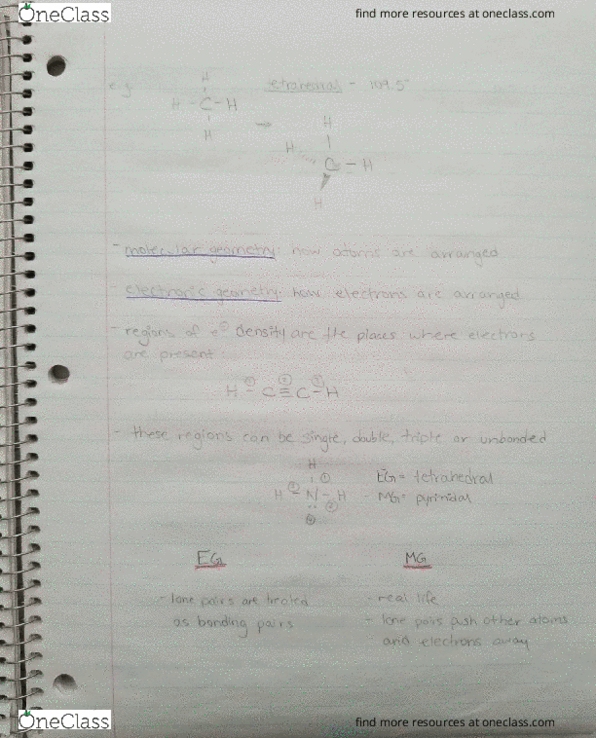 OneClass
find more resources at oneclass.com
e.g.
H
tetrahedral - 109.5°
H - C - H
H
→
H
H C - H
H
- molecular geometry: how atoms are arranged
- electronic geometry: how electrons are arranged
- regions of e⊖ density are the places where electrons
are present:
H ①- C ②≡ C ③- H
- these regions can be single, double, triple or unbonded
H
① EG = tetrahedral
H - N - H - MG = pyrimidal
EG
MG
- lone pairs are treated
as bonding pairs
- real life
- lone pairs push other atoms
and electrons away
OneClass
find more resources at oneclass.com